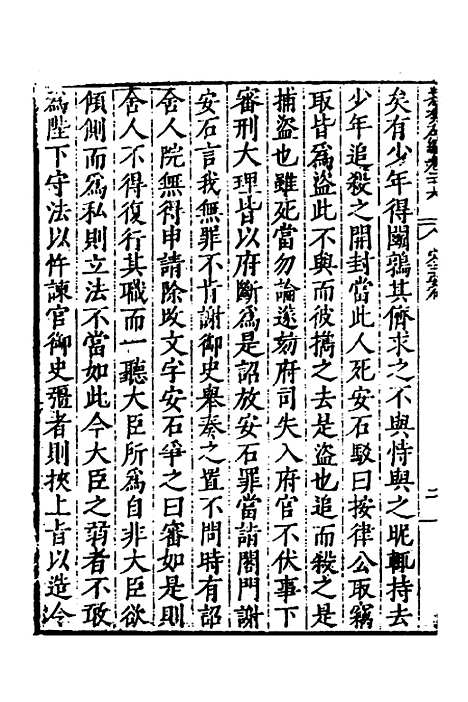 矣有少年得鬬鶉其儕求之不與恃與之昵輒持去
少年追殺之開封當此人死安石駁曰按律公取竊
取皆爲盜此不與而彼擕之去是盜也追而殺之是
捕盜也雖死當勿論遂劾府司失入府官不伏事下
審刑大理皆以府斷爲是詔放安石罪當詣閤門謝
安石言我無罪不肯謝御史舉奏之置不問時有詔
舍人院無得申請除改文字安石爭之曰審如是則
舍人不得復行其職而一聽大臣所爲自非大臣欲
傾側而爲私則立法不當如此今大臣之弱者不敢
爲陛下守法以忤諫官御史彊者則挾上旨以造令